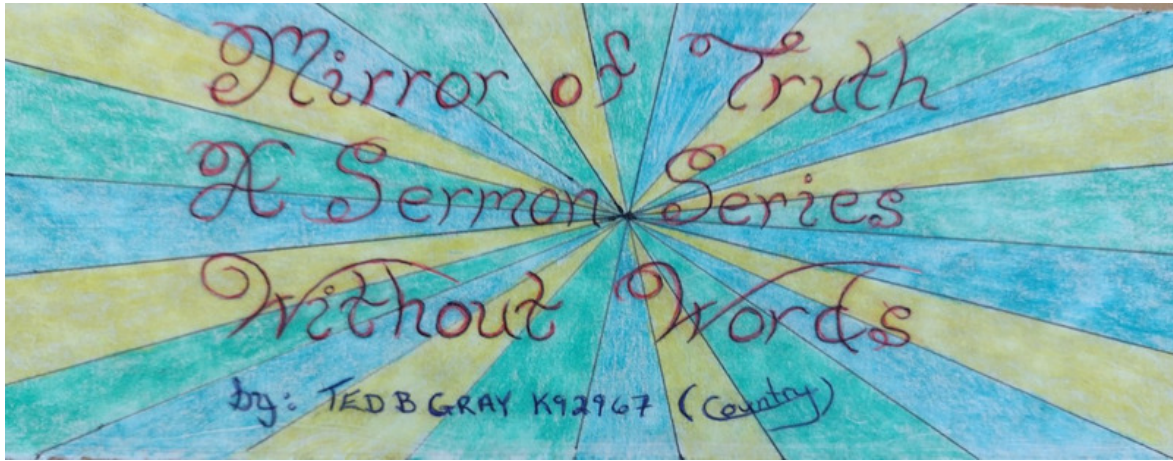 Mirror of Truth
A Sermon Series
Without Words
by: TED B GRAY K92967 (Country)